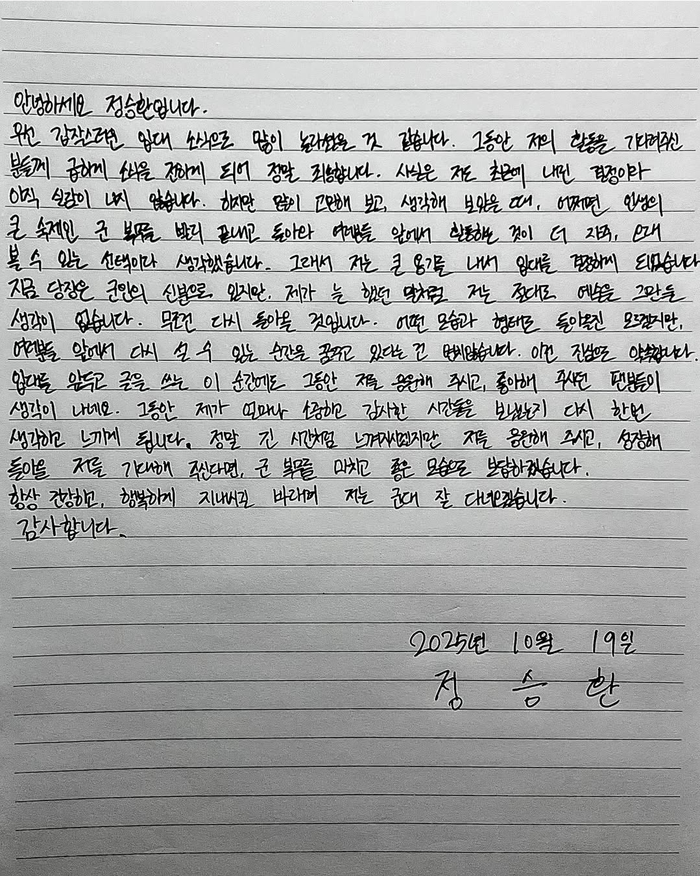 안녕하세요 정승환입니다.
우선 갑작스러운 입대 소식으로 많이 놀라셨을 것 같습니다. 그동안 저의 활동을 기다려주신
분들께 급하게 소식을 전하게 되어 정말 죄송합니다. 사실은 저도 최근에 내린 결정이라
아직 실감이 나지 않습니다. 하지만 많이 고민해 보고, 생각해 보았을 때, 어쩌면 인생의
큰 숙제인 군 복무를 빨리 끝내고 돌아와 여러분들 앞에서 활동하는 것이 더 자주, 오래
볼 수 있는 선택이라 생각했습니다. 그래서 저는 큰 용기를 내서 입대를 결정하게 되었습니다
지금 당장은 군인의 신분으로 있지만, 제가 늘 했던 말처럼 저는 절대로 예술을 그만둘
생각이 없습니다. 무조건 다시 돌아올 것입니다. 어떤 모습과 형태로 돌아올진 모르겠지만,
여러분들 앞에서 다시 설 수 있는 순간을 꿈꾸고 있다는 건 변치않습니다. 이건 진심으로 약속합니다.
입대를 앞두고 글을 쓰는 이 순간에도 그동안 저를 응원해 주시고, 좋아해 주셨던 팬분들의
생각이 나네요. 그동안 제가 얼마나 소중하고 감사한 시간들을 보냈는지 다시 한번
생각하고 느끼게 됩니다. 정말 긴 시간처럼 느껴지시겠지만 저를 응원해 주시고, 성장해
돌아올 저를 기대해 주신다면, 군 복무를 마치고 좋은 모습으로 보답하겠습니다.
항상 건강하고, 행복하게 지내시길 바라며 저는 군대 잘 다녀오겠습니다.
감사합니다.
2025년 10월 19일
정 승 환